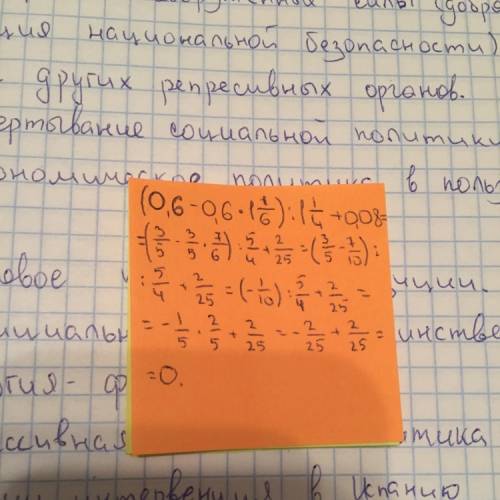 силы (добро
ция национальной безопасности)
других репресивных органов.
ертывание социальной политики
ономическое политика в поль
(0,6-0,6·1 7/6):1 1/4+0,08=
=(3/5-3/5·7/6):5/4+2/25=(3/5-7/10):
:5/4+2/25=(-1/10):5/4+2/25=
=-1/5·2/5+2/25=-2/25+2/25=
=0.
овое ции.
циальн инстве
гия-ф
ссивная тика
интервенция в Испанию